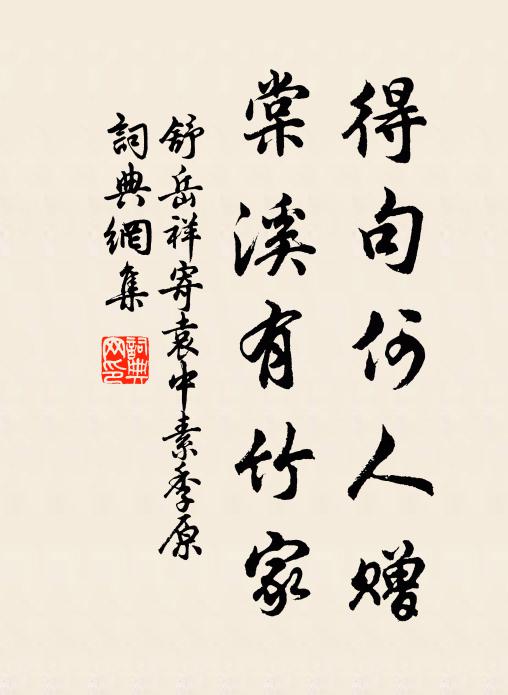 得句何人赠
棠溪有竹家
舒岳祥寄袁中素季原
詞典網集
詞典网印